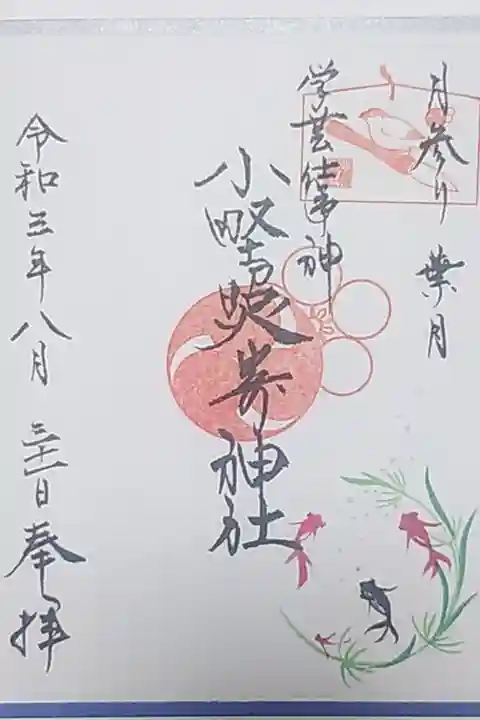 月参り 葉月
学芸仕事神
小野照崎神社
令和三年八月三十一日奉拝